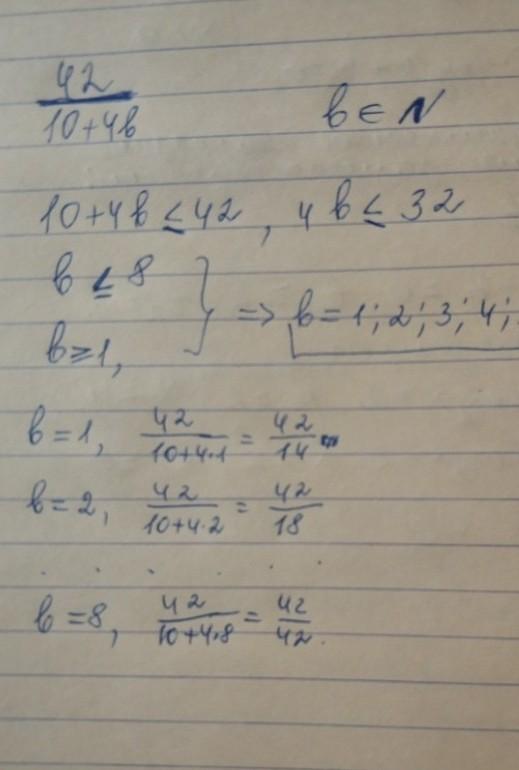 42/(10+4b)   b ∈ N
10+4b ≤ 42, 4b ≤ 32
b ≤ 8
b ≥ 1, } => b = 1; 2; 3; 4;
b = 1, 42/(10+4·1) = 42/14
b = 2, 42/(10+4·2) = 42/18
. . . . .
b = 8, 42/(10+4·8) = 42/42.